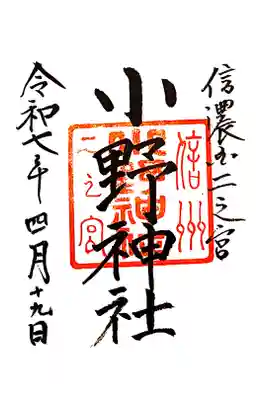 信濃国二之宮
小野神社
令和七年四月十九日
信州
二之宮